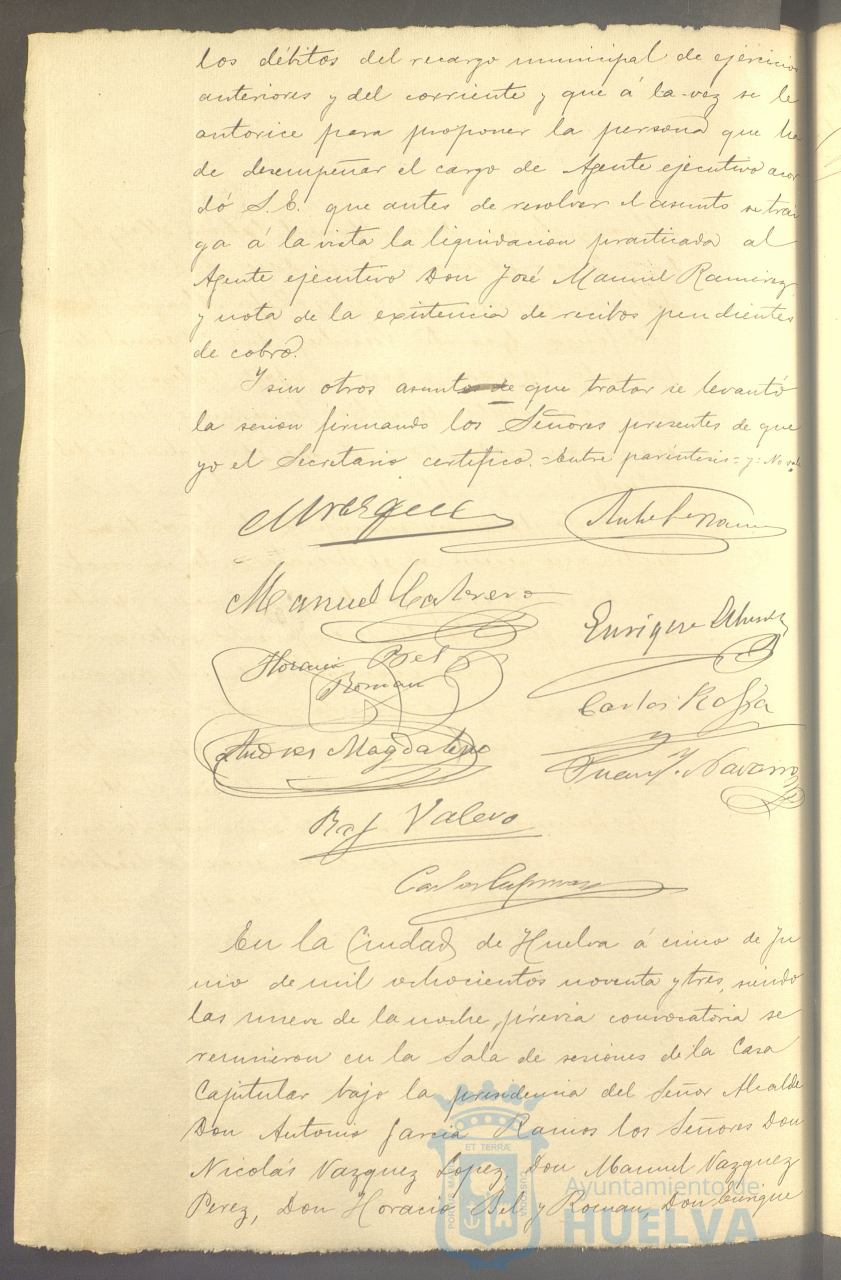 los débitos del recargo municipal de ejercicios
anteriores y del corriente y que á la vez se le
autorice para proponer la persona que ha
de desempeñar el cargo de Agente ejecutivo acor
dó S.E. que antes de resolver el asunto se trai
ga á la vista la liquidacion practicada al
Agente ejecutivo Don José Manuel Ramirez
y nota de la existencia de recibos pendientes
de cobro.
Y sin otros asuntos de que tratar se levantó
la sesion firmando los Señores presentes de que
yo el Secretario certifico. =Entre paréntesis= y= No vale
Manuel
Enrique
Horacio Bel
Roman
Carlos
Andres Magdaleno
Juan J. Navarro
Raf Valero
Carlos
En la Ciudad de Huelva á cinco de Ju
nio de mil ochocientos noventa y tres, siendo
las nueve de la noche, prévia convocatoria se
reunieron en la Sala de sesiones de la Casa
Capitular bajo la presidencia del Señor Alcalde
Don Antonio Garcia Ramos los Señores Don
Nicolás Vazquez Lopez, Don Manuel Vazquez
Perez, Don Horacio Bel y Roman, Don Enrique
ET TERRÆ
Ayuntamiento de
HUELVA